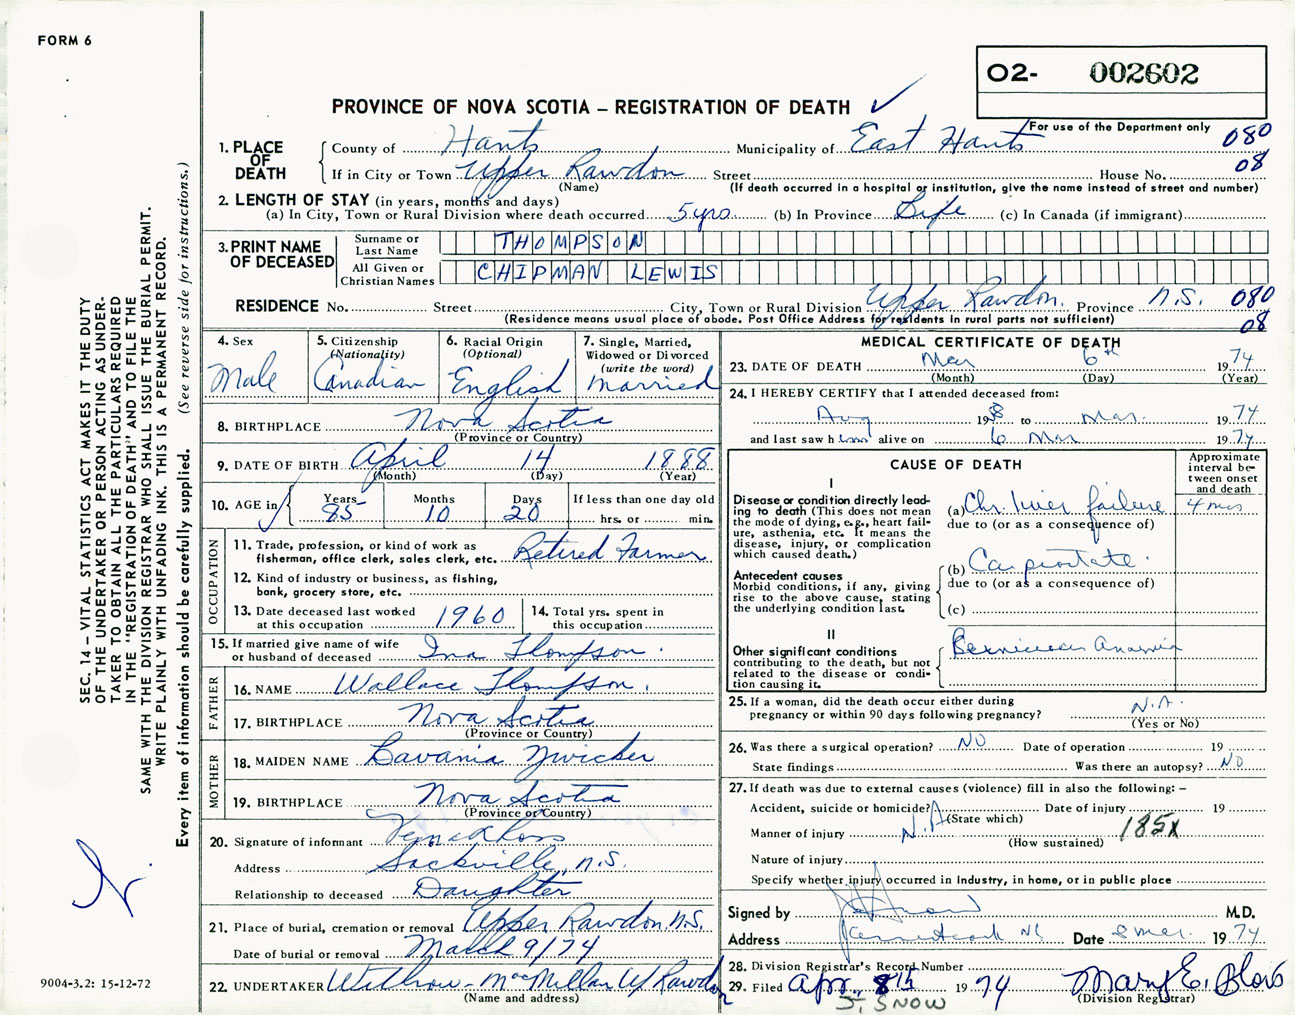 FORM 6
O2- 002602
PROVINCE OF NOVA SCOTIA – REGISTRATION OF DEATH ✓
For use of the Department only
1. PLACE OF DEATH County of Hants Municipality of East Hants 080
If in City or Town Upper Rawdon Street House No. 08
(Name) (If death occurred in a hospital or institution, give the name instead of street and number)
2. LENGTH OF STAY (in years, months and days)
(a) In City, Town or Rural Division where death occurred 5 yrs. (b) In Province Life (c) In Canada (if immigrant)
3. PRINT NAME OF DECEASED Surname or Last Name THOMPSON
All Given or Christian Names CHIPMAN LEWIS
RESIDENCE No. Street City, Town or Rural Division Upper Rawdon. Province N.S. 080
(Residence means usual place of abode. Post Office Address for residents in rural parts not sufficient) 08
4. Sex Male
5. Citizenship (Nationality) Canadian
6. Racial Origin (Optional) English
7. Single, Married, Widowed or Divorced (write the word) Married
8. BIRTHPLACE Nova Scotia
(Province or Country)
9. DATE OF BIRTH April 14 1888
(Month) (Day) (Year)
10. AGE in Years 85 Months 10 Days 20 If less than one day old hrs. or min.
OCCUPATION
11. Trade, profession, or kind of work as fisherman, office clerk, sales clerk, etc. Retired Farmer
12. Kind of industry or business, as fishing, bank, grocery store, etc.
13. Date deceased last worked at this occupation 1960
14. Total yrs. spent in this occupation
15. If married give name of wife or husband of deceased Ina Thompson.
FATHER
16. NAME Wallace Thompson.
17. BIRTHPLACE Nova Scotia
(Province or Country)
MOTHER
18. MAIDEN NAME Lavania Zwicker
19. BIRTHPLACE Nova Scotia
(Province or Country)
20. Signature of informant
Address Sackville, N.S.
Relationship to deceased Daughter
21. Place of burial, cremation or removal Upper Rawdon N.S.
Date of burial or removal March 9/74
22. UNDERTAKER Withrow - MacMillan U/Rawdon
(Name and address)
MEDICAL CERTIFICATE OF DEATH
23. DATE OF DEATH Mar 6th 1974
(Month) (Day) (Year)
24. I HEREBY CERTIFY that I attended deceased from:
Aug 19 to Mar. 1974
and last saw him alive on 6 Mar 1974
CAUSE OF DEATH
Approximate interval between onset and death
I
Disease or condition directly leading to death (This does not mean the mode of dying, e.g., heart failure, asthenia, etc. It means the disease, injury, or complication which caused death.)
(a) Chr. liver failure 4 mos
due to (or as a consequence of)
Antecedent causes
Morbid conditions, if any, giving rise to the above cause, stating the underlying condition last.
(b) Ca prostate
due to (or as a consequence of)
(c)
II
Other significant conditions contributing to the death, but not related to the disease or condition causing it.
Pernicious Anaemia
25. If a woman, did the death occur either during pregnancy or within 90 days following pregnancy? N.A.
(Yes or No)
26. Was there a surgical operation? NO Date of operation 19
State findings Was there an autopsy? NO
27. If death was due to external causes (violence) fill in also the following: –
Accident, suicide or homicide? Date of injury 19
(State which)
Manner of injury N.A 185X
(How sustained)
Nature of injury
Specify whether injury occurred in Industry, in home, or in public place
Signed by M.D.
Address Date 8 Mar. 1974
28. Division Registrar's Record Number
29. Filed Apr. 8th 1974 Mary E. Blois
(Division Registrar)
J. SNOW
SEC. 14 – VITAL STATISTICS ACT MAKES IT THE DUTY
OF THE UNDERTAKER OR PERSON ACTING AS UNDER-
TAKER TO OBTAIN ALL THE PARTICULARS REQUIRED
IN THE "REGISTRATION OF DEATH" AND TO FILE THE
SAME WITH THE DIVISION REGISTRAR WHO SHALL ISSUE THE BURIAL PERMIT.
WRITE PLAINLY WITH UNFADING INK. THIS IS A PERMANENT RECORD.
Every item of information should be carefully supplied. (See reverse side for instructions.)
9004-3.2: 15-12-72